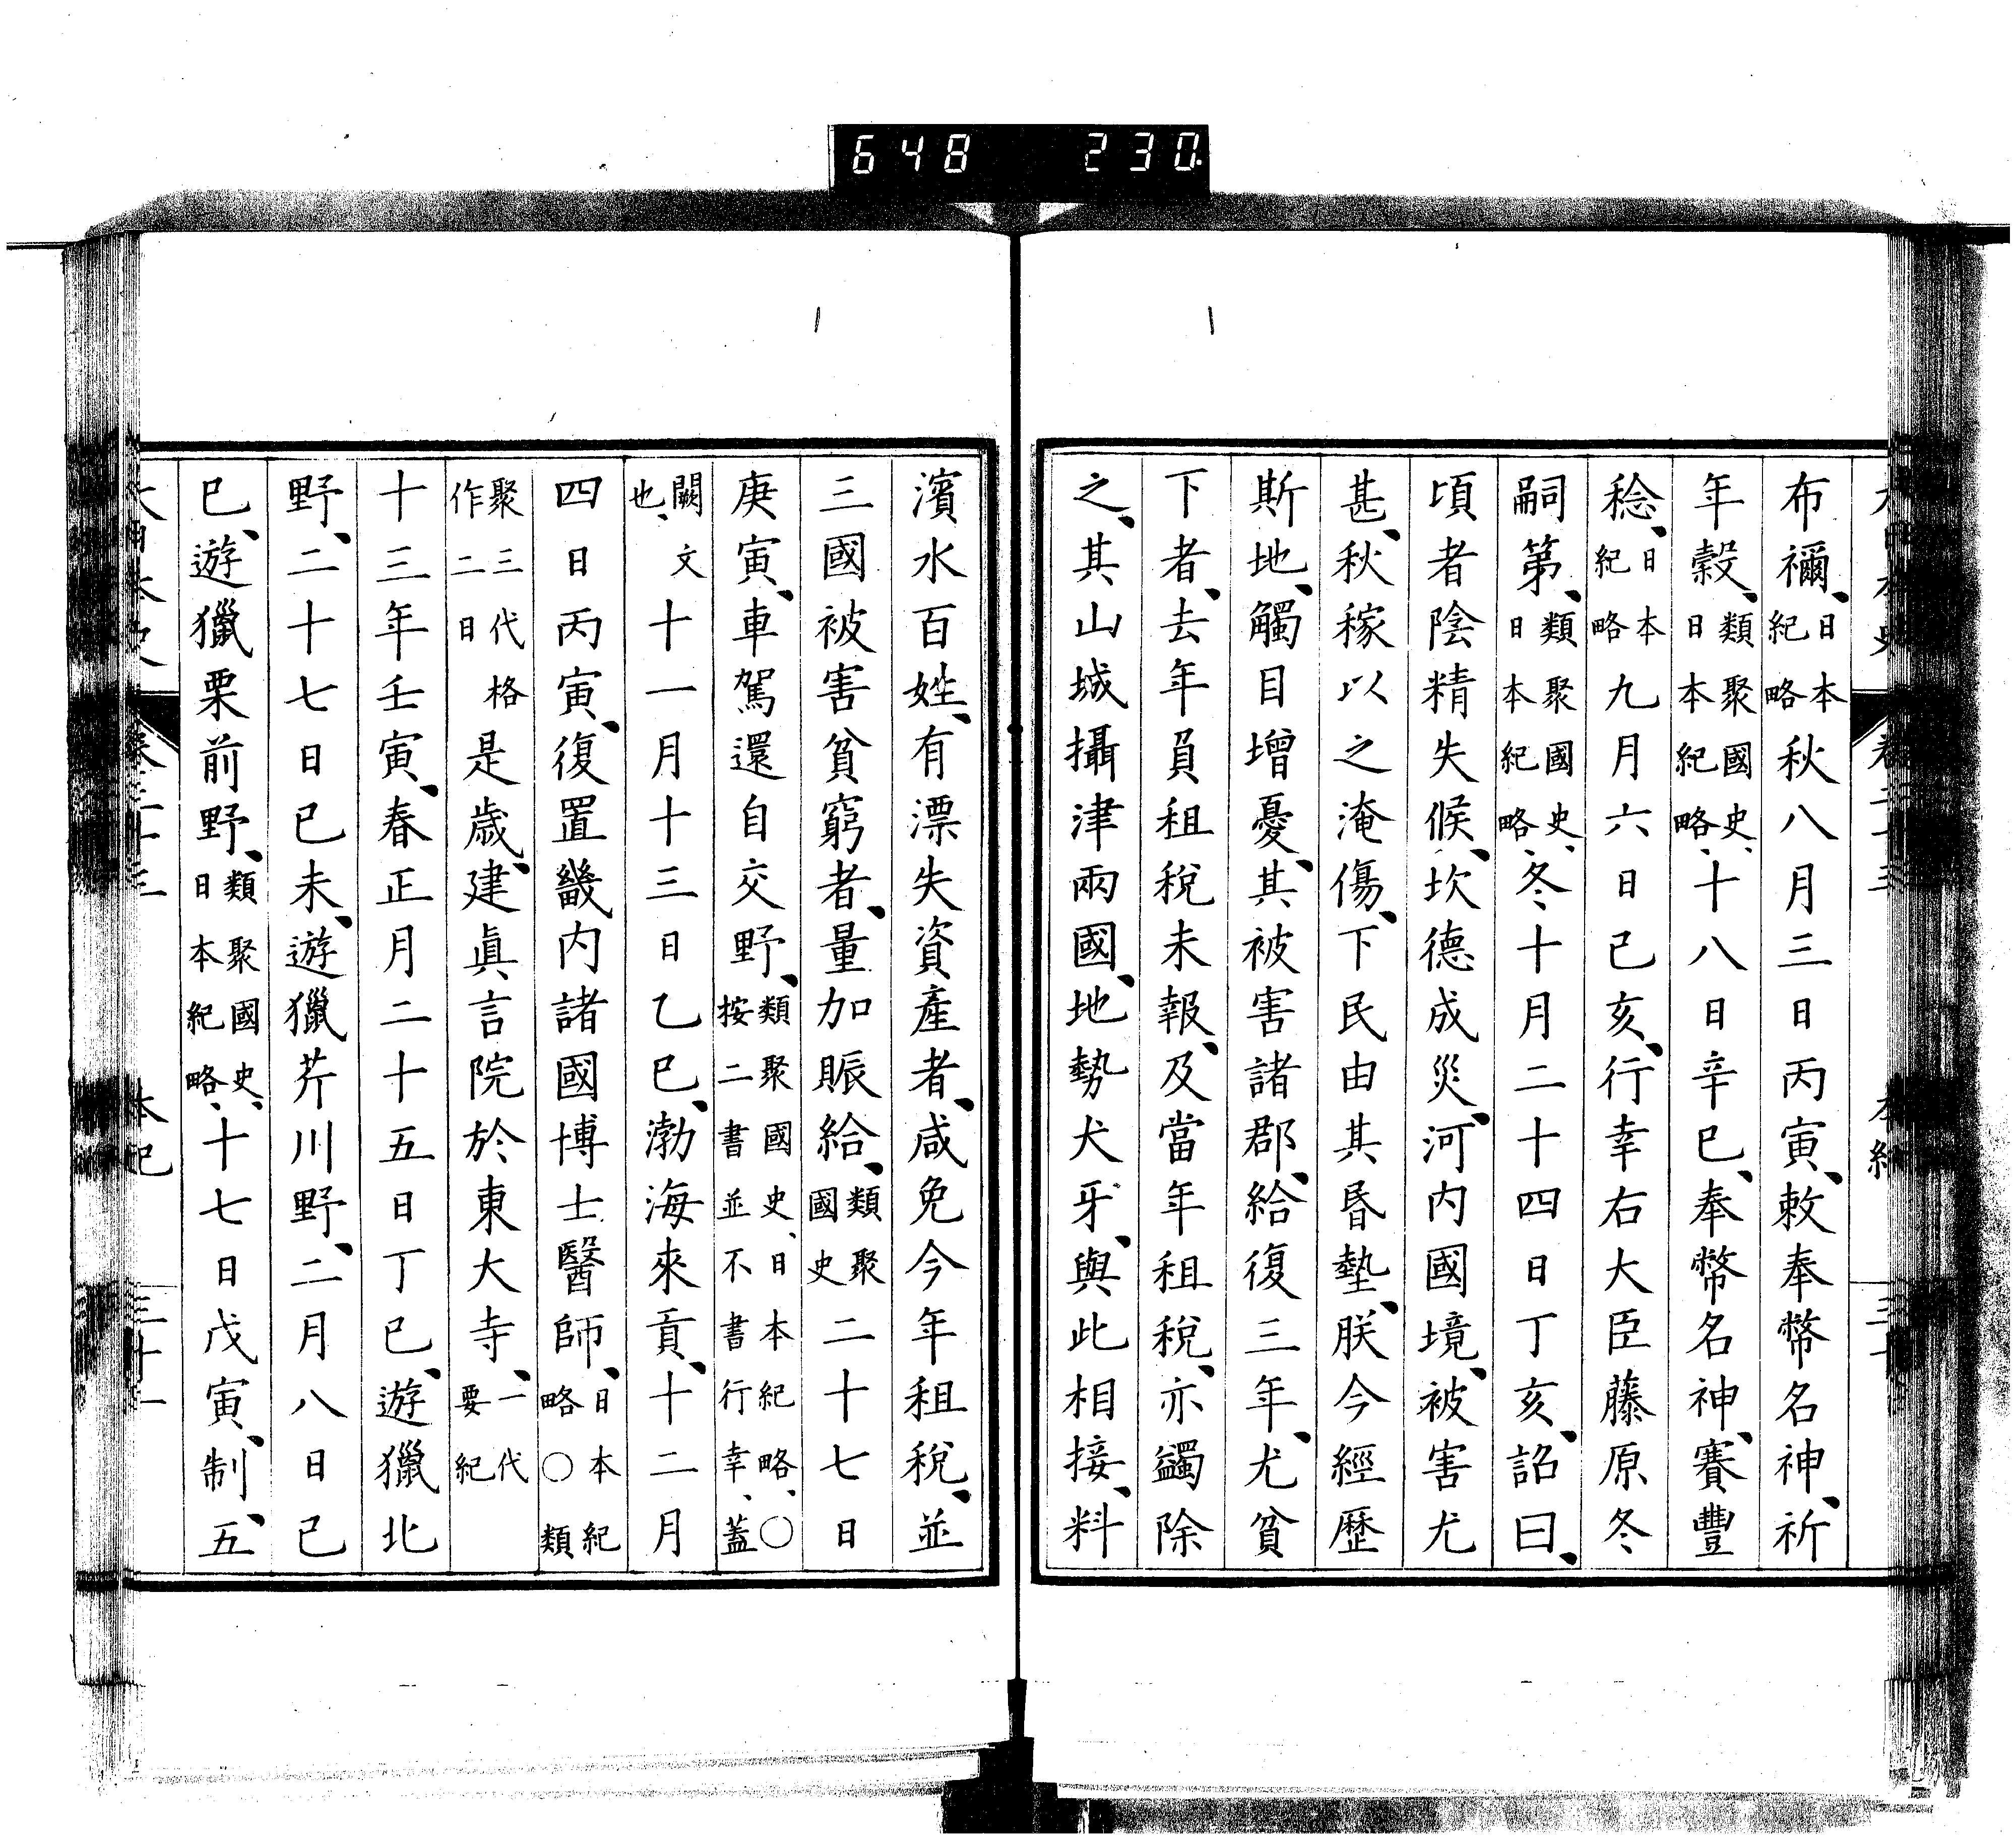 648 230
布禰、日本紀略秋八月三日丙寅、敕奉幣名神、祈
年穀、類聚國史、日本紀略、十八日辛巳、奉幣名神、賽豐
稔、日本紀略九月六日己亥、行幸右大臣藤原冬
嗣第、類聚國史、日本紀略、冬十月二十四日丁亥、詔曰、
頃者陰精失候、坎德成災、河內國境、被害尤
甚、秋稼以之淹傷、下民由其昏墊、朕今經歷
斯地、觸目增憂、其被害諸郡、給復三年、尤貧
下者、去年負租稅未報、及當年租稅、亦蠲除
之、其山城攝津兩國、地勢犬牙、與此相接、料
濱水百姓、有漂失資產者、咸免今年租稅、並
三國被害貧窮者、量加賑給、類聚國史二十七日
庚寅、車駕還自交野、類聚國史、日本紀略、○按二書並不書行幸、蓋
闕文也、十一月十三日乙巳、渤海來貢、十二月
四日丙寅、復置畿內諸國博士醫師、日本紀略○類
聚三代格作二日是歲、建眞言院於東大寺、一代要紀
十三年壬寅、春正月二十五日丁巳、遊獵北
野、二十七日己未、遊獵芹川野、二月八日己
巳、遊獵栗前野、類聚國史、日本紀略、十七日戊寅、制、五
本紀